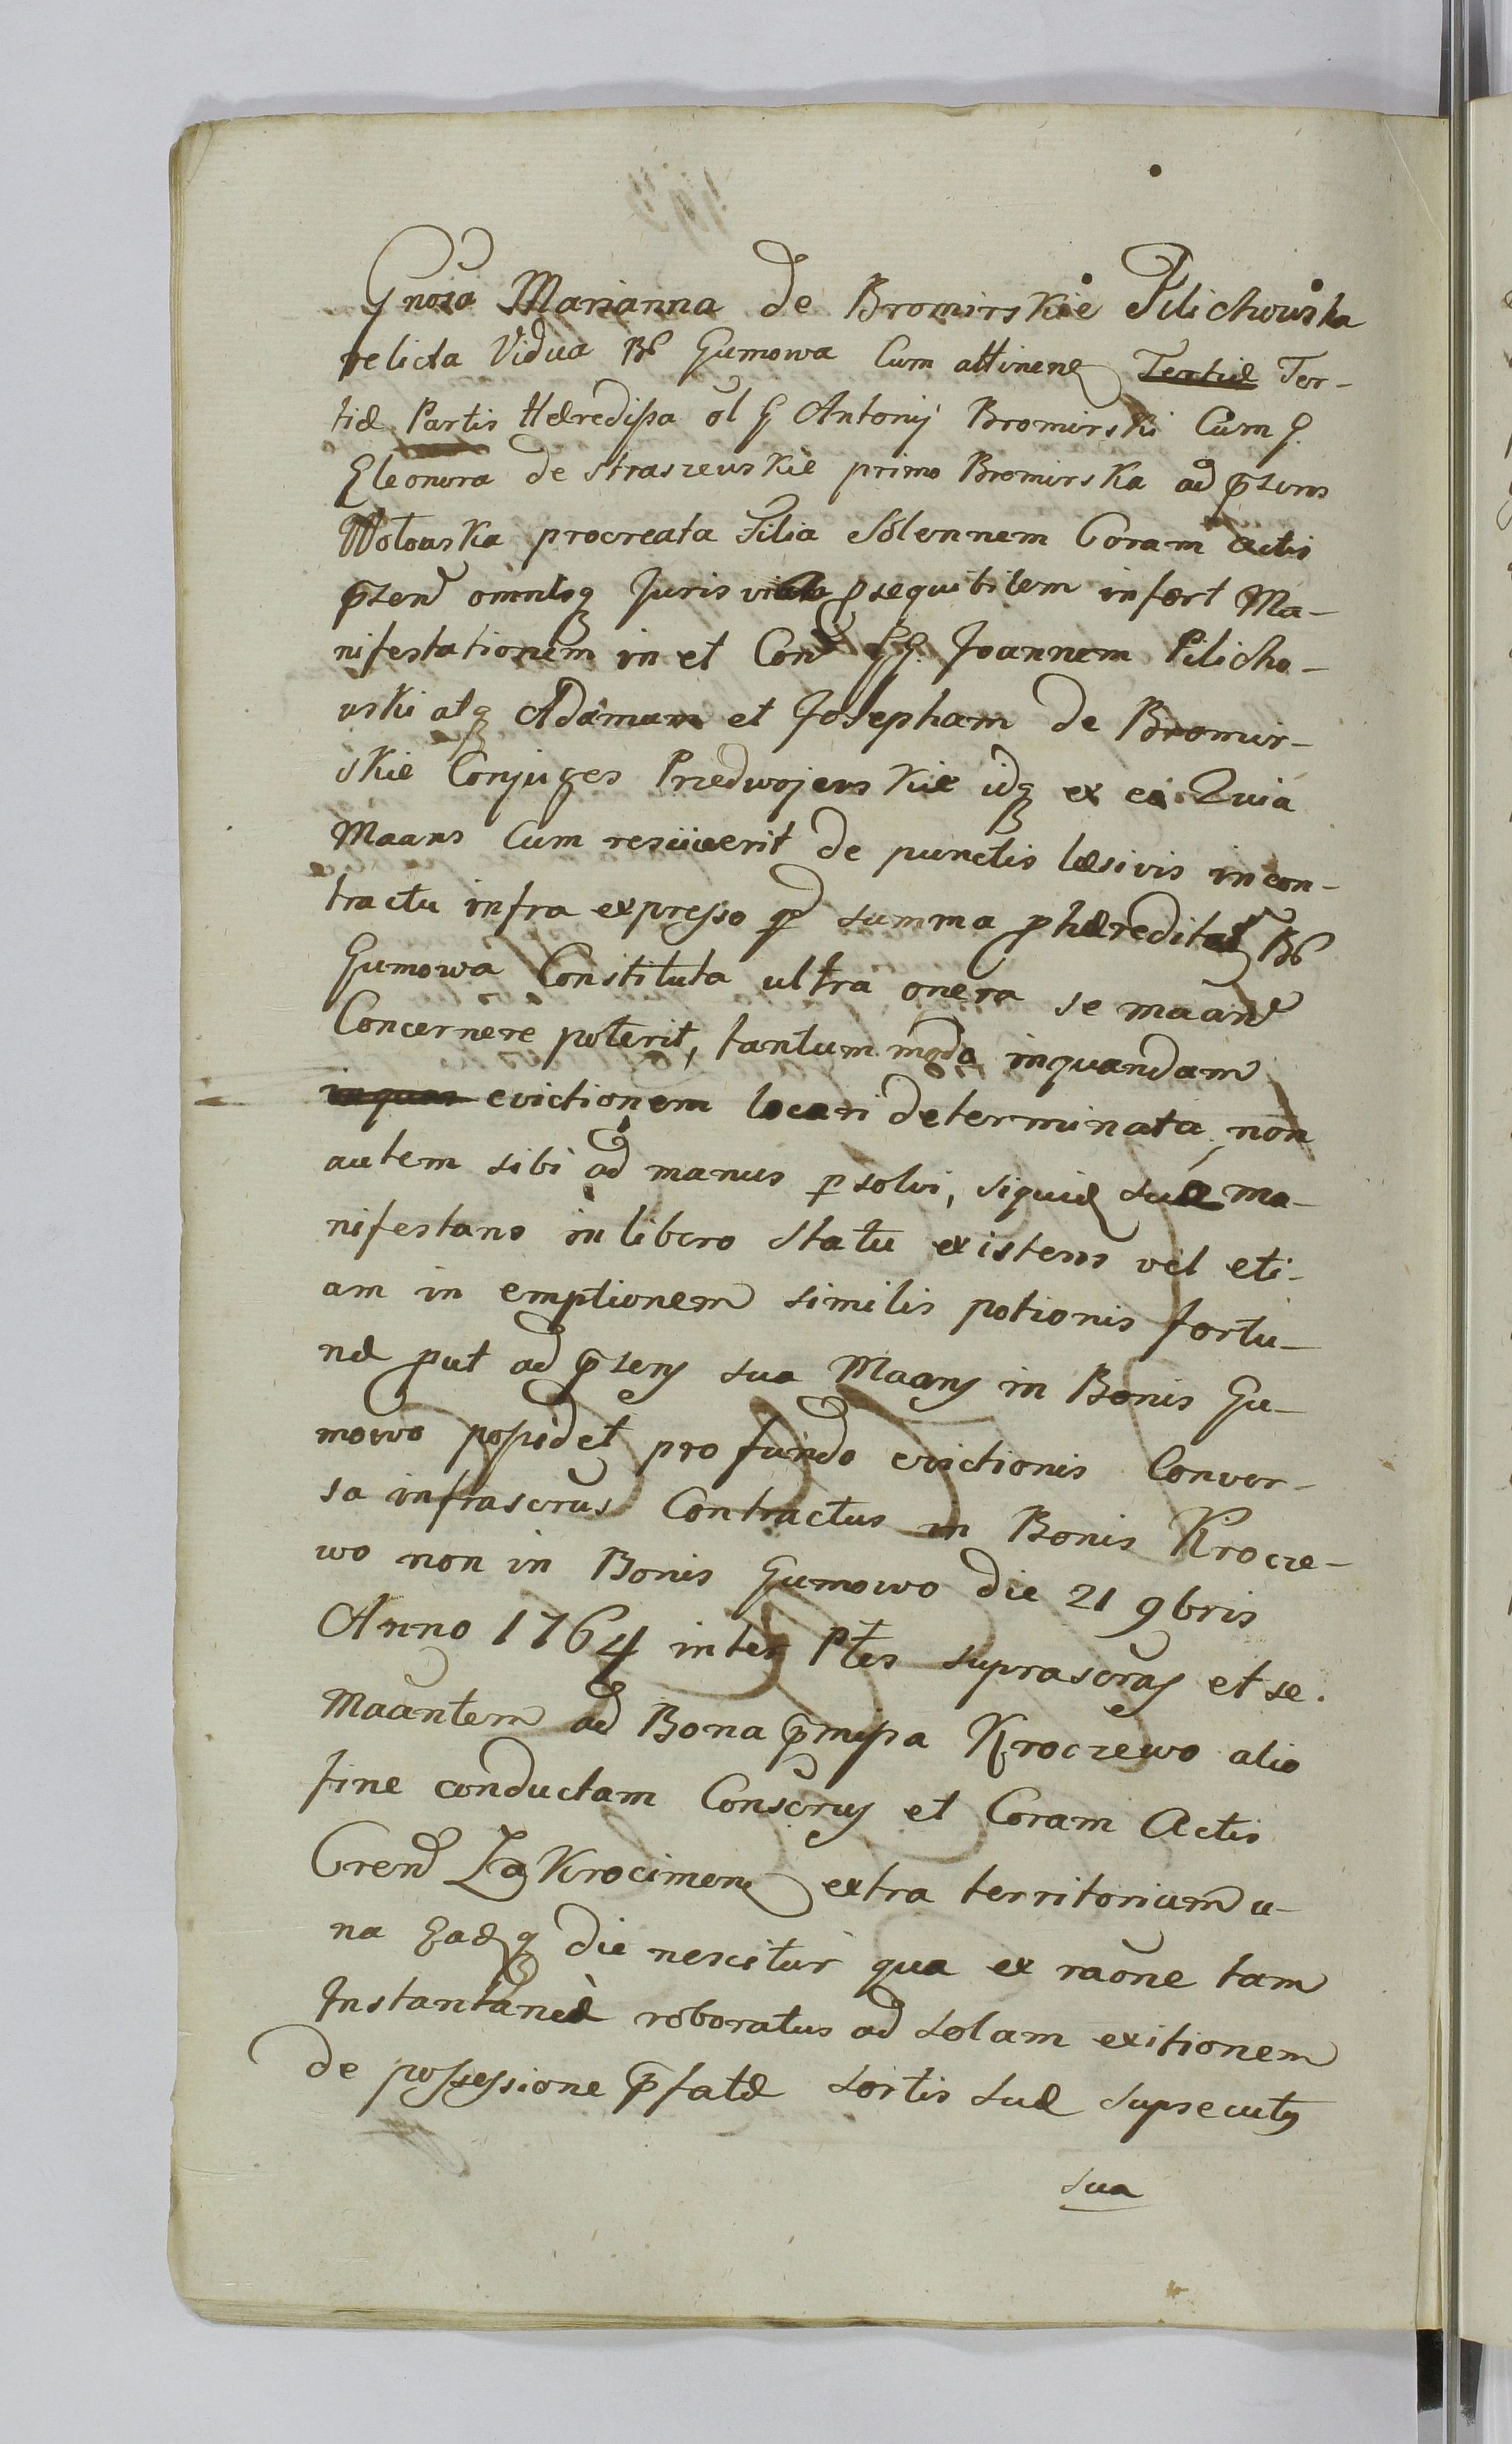 Gnosa Marianna de Bromirskie Pilichowska
relicta Vidua Br Gumowa Cum attinen Tertiæ Ter-
tiæ Partis Hæredissa ol G Antonij Bromirski Cum G.
Eleonora de Straszewskie primo Bromirska ad pzens
Wołowska procreata Filia Solennem Coram Actis
pzen omnibsq Juris via psequibilem infert Ma-
nifestationem in et Con GG. Joannem Pilicho-
wski atq Adamum et Josepham de Bromir-
skie Conjuges Przedwojewskie idq ex eo Quia
Maans Cum resciverit de punctis læsivis in con-
tractu infra expresso qd summa p hæreditat Br
Gumowa Constituta ultra onera se maan
Concernere poterit, tantum modo in quandam
in quan evictionem locari determinata, non
autem sibi ad manus psolvi, siquid suæ ma-
nifestans in libero Statu existens vel eti-
am in emptionem similis potionis fortu-
næ put ad pzens sua Maans in Bonis Gu-
mowo possidet pro fundo evictionis Conver-
sa infrascrus Contractus in Bonis Krocze-
wo non in Bonis Gumowo die 21 9bris
Anno 1764 inter Ptes suprascras et se.
Maantem ad Bona pmissa Kroczewo alio
fine conductam Conscrus et Coram Actis
Cren Zakrocimen extra territorium u-
na Eadq die nescitur qua ex raone tam
Instantaneæ roboratus ad solam exitionem
de possessione pfatæ sortis suæ supsecuts
sua